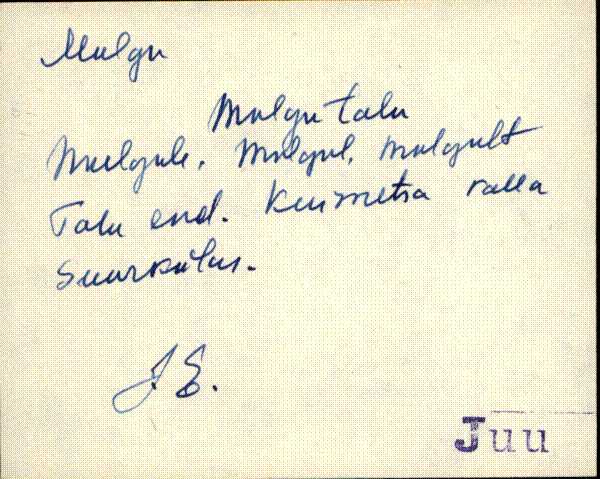 Mulgu
Mulgu talu
Mulgule, Mulgul, Mulgult
Talu end. Kuimetsa valla
Suurkülas.
J. E.
Juu